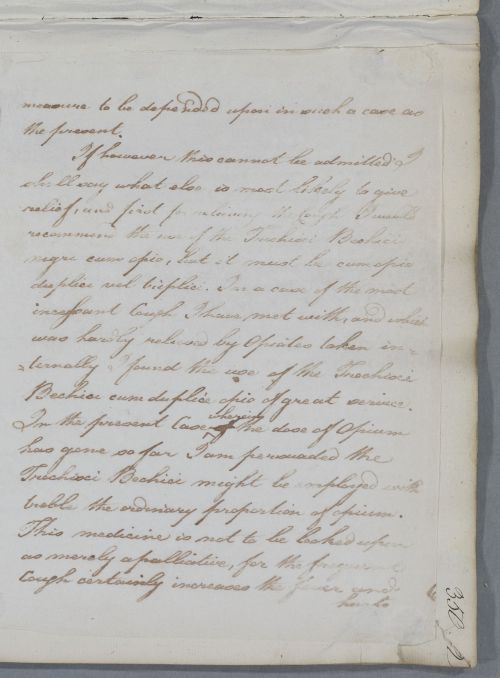 measure to be depended upon in such a case as
the present.
If however this cannot be admitted I
shall say what else is most likely to give
relief, and first for relieving the Cough I would
recommend the use of the Trochisci Bechici
nigri cum opio, but it must be cum opio
duplici vel triplici. In a case of the most
incessant Cough I have met with, and which
was hardly relieved by Opiates taken in=
=ternally I found the use of the Trochisci
Bechici cum duplici opio of great service.
In the present Case wherein the dose of Opium
has gone so far I am persuaded the
Trochisci Bechici might be employed with
treble the ordinary proportion of opium.
This medicine is not to be looked upon
as merely a palliative, for the frequent
Cough certainly increases the fever and
hurts
350